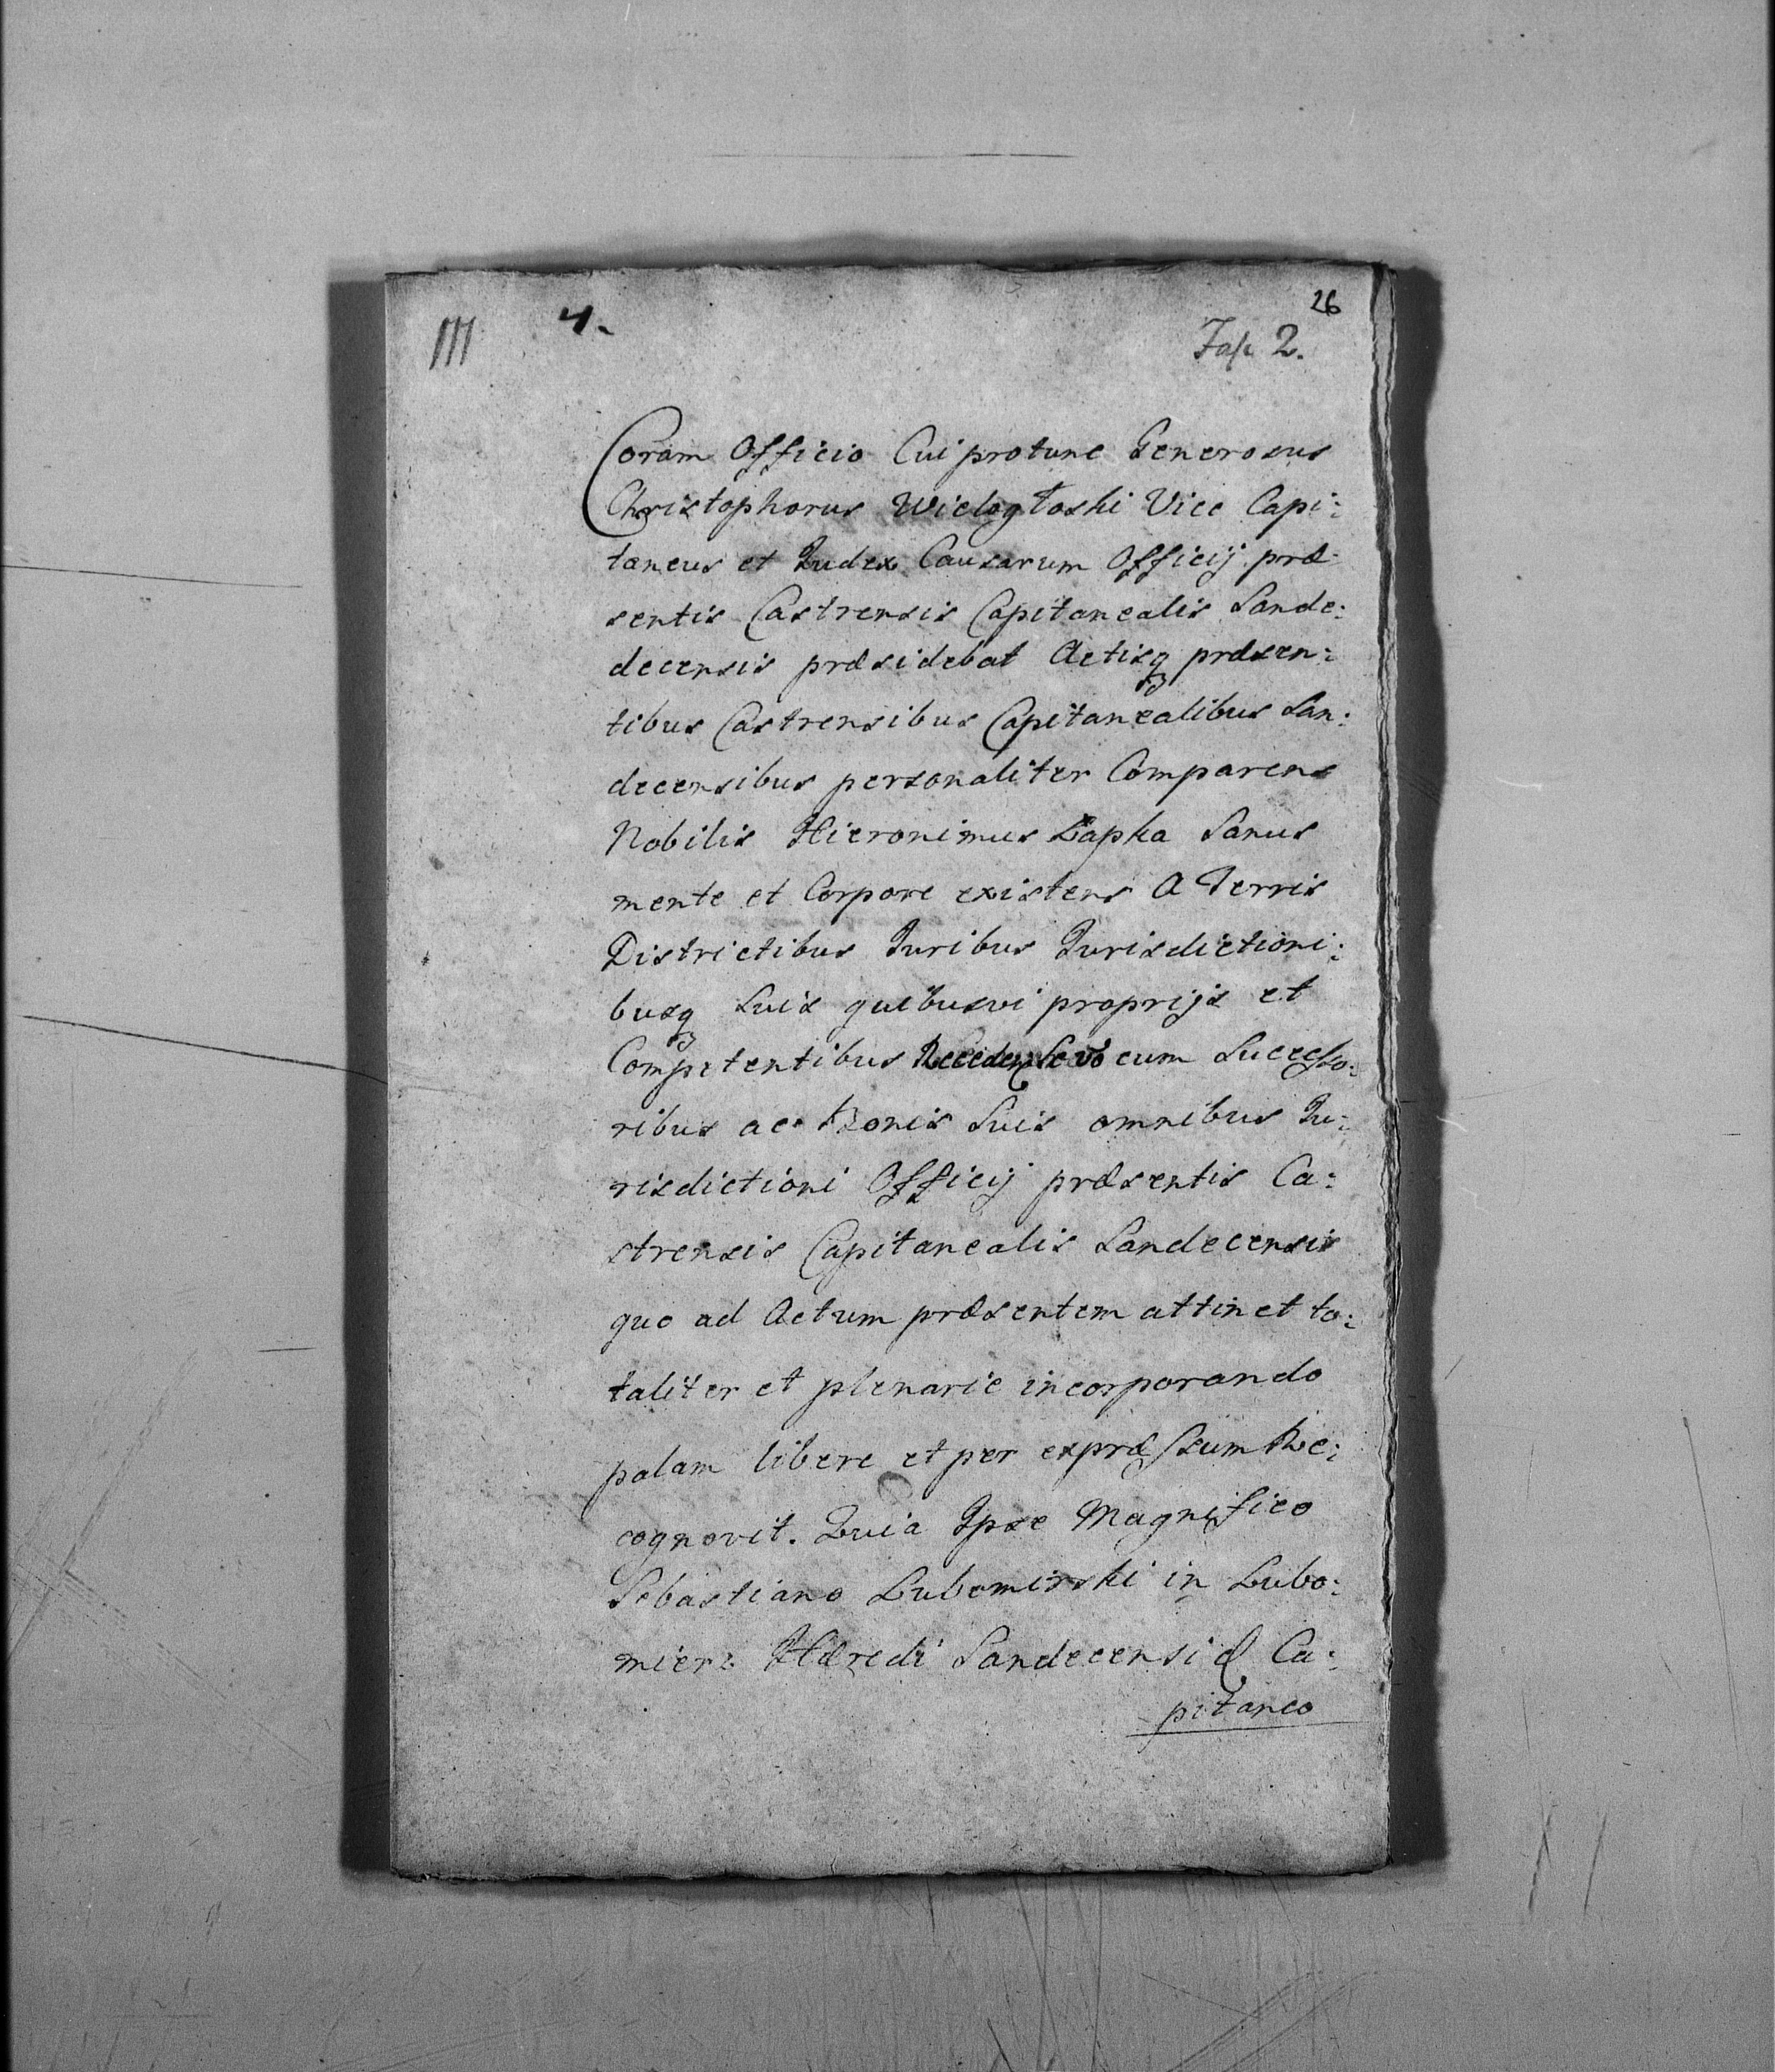 26
III 4. Fas. 2.
Coram Officio Cui protunc Generosus
Christophorus Wielogłoski Vice Capi:
taneus et Iudex Causarum Officij præ
sentis Castrensis Capitanealis Sande:
decensis præsidebat Actisq præsen:
tibus Castrensibus Capitanealibus San:
decensibus personaliter Comparens
Nobilis Hieronimus Łapka Sanus
mente et Corpore existens A Terris
Districtibus Iuribus Iurisdictioni:
busq Suis quibusvi proprijs et
Competentibus Recedens Se vo cum Successo:
ribus ac Bonis Suis omnibus Iu:
risdictioni Officij præsentis Ca:
strensis Capitanealis Sandecensis
quo ad Actum præsentem attinet to:
taliter et plenarie incorporando
palam libere et per expræssum Re:
cognovit. Quia Ipse Magnifico
Sebastiano Lubomirski in Lubo:
mierz Hæredi Sandecensi & Ca:
pitaneo